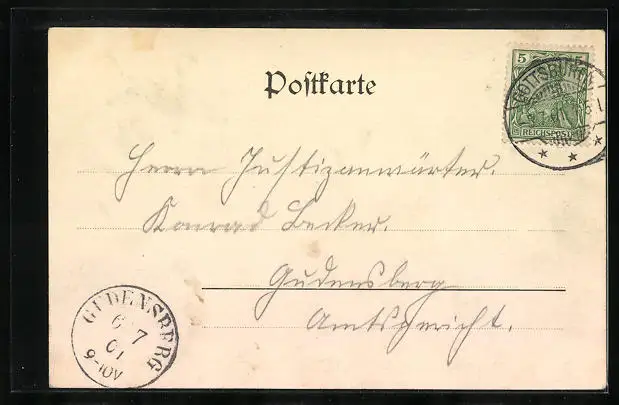 Postkarte
5 5
REICHSPOST
Herrn Justizanwärter.
Konrad Becker.
Gudensberg
Amtsgericht.
GUDENSBERG
6 7
01
9-10V